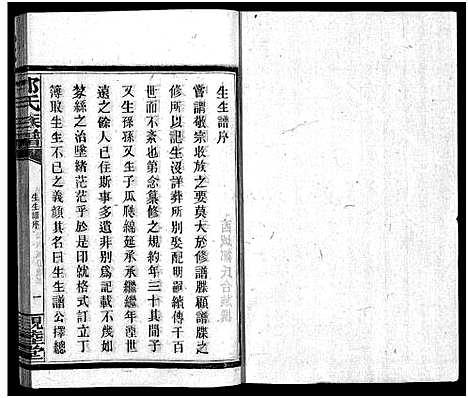 生生譜序
嘗謂敬宗收族之要莫大於修譜牒顧譜牒之
修所以記生沒詳葬所別娶配明嗣續傳千百
世而不紊也第念纂修之規約年三十其間子
又生孫孫又生子瓜瓞綿延承承繼繼年湮世
遠之餘人已住斯事多遺非別為記載不幾如
棼絲之治墜緒茫茫乎於是印就格式訂立丁
簿取生生不已之義顏其名曰生生譜公擇總
氏族譜
生生譜序
一
親睦堂